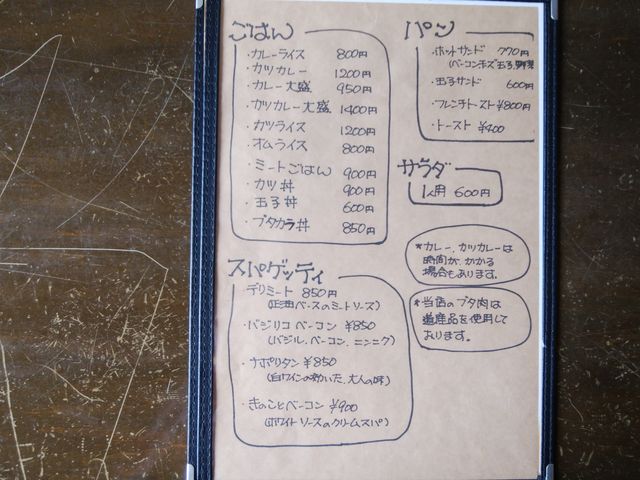 ごはん
・カレーライス 800円
・カツカレー 1200円
・カレー大盛 950円
・カツカレー大盛 1400円
・カツライス 1200円
・オムライス 800円
・ミートごはん 900円
・カツ丼 900円
・玉子丼 600円
・ブタカラ丼 850円
パン
・ホットサンド 770円
(ベーコンチーズ 玉子, 野菜
・玉子サンド 600円
・フレンチトースト ¥800円
・トースト ¥400
サラダ
1人用 600円
*カレー、カツカレーは
時間が、かかる
場合もあります。
*当店のブタ肉は
道産品を使用して
おります。
スパゲッティ
・デリミート 850円
(正油ベースのミートソース)
・バジリコベーコン ¥850
(バジル、ベーコン、ニンニク)
・ナポリタン ¥850
(白ワインの効いた、大人の味)
・きのことベーコン ¥900
(ホワイトソースのクリームスパ)